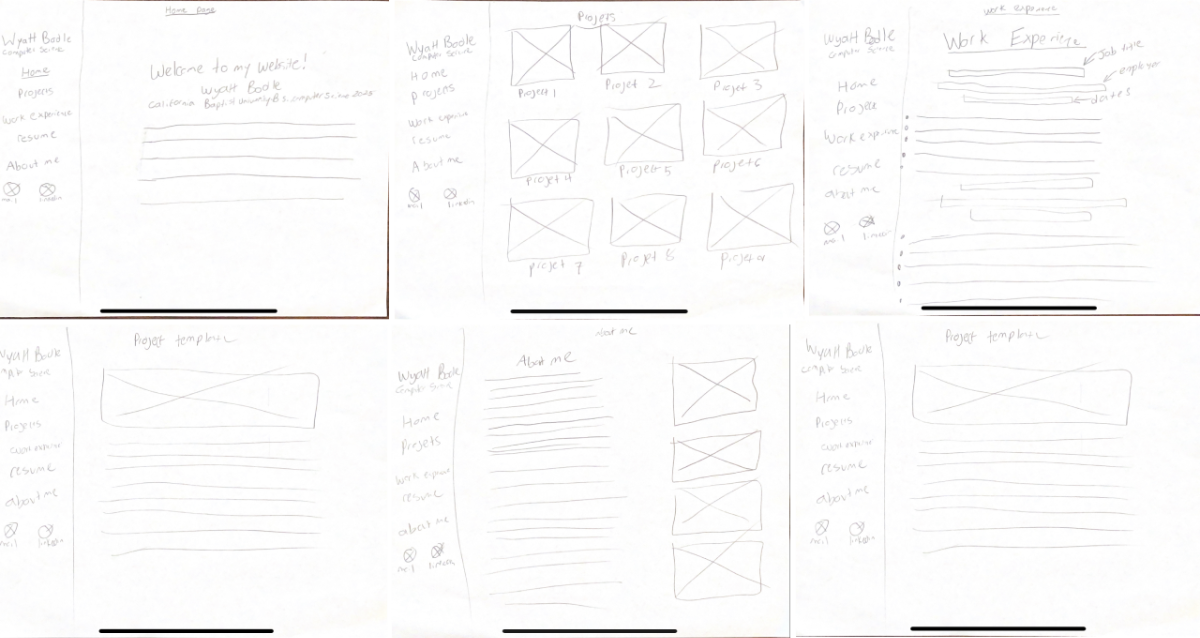 Home page
Wyatt Bodle
Computer Science
Home
Projects
Work experience
resume
About me
mail
linkedin
Welcome to my website!
Wyatt Bodle
California Baptist University B.S. Computer Science 2025
Projets
Wyatt Bodle
Computer Science
Home
projects
Work experience
resume
About me
mail
linkedin
Project 1
Projet 2
Projet 3
Projet 4
Projet 5
Projet 6
Projet 7
Projet 8
Projet 9
work experience
Wyatt Bodle
Computer Science
Home
Work experience
resume
about me
mail
Work Experience
Job title
employer
dates
Project template
Wyatt Bodle
Home
Projects
resume
about me
mail
linkedin
About me
Wyatt Bodle
Computer Science
Home
Projets
Work experience
resume
about me
mail
linkedin
About me
Project template
Wyatt Bodle
Home
Projects
resume
About me
mail
linkedin